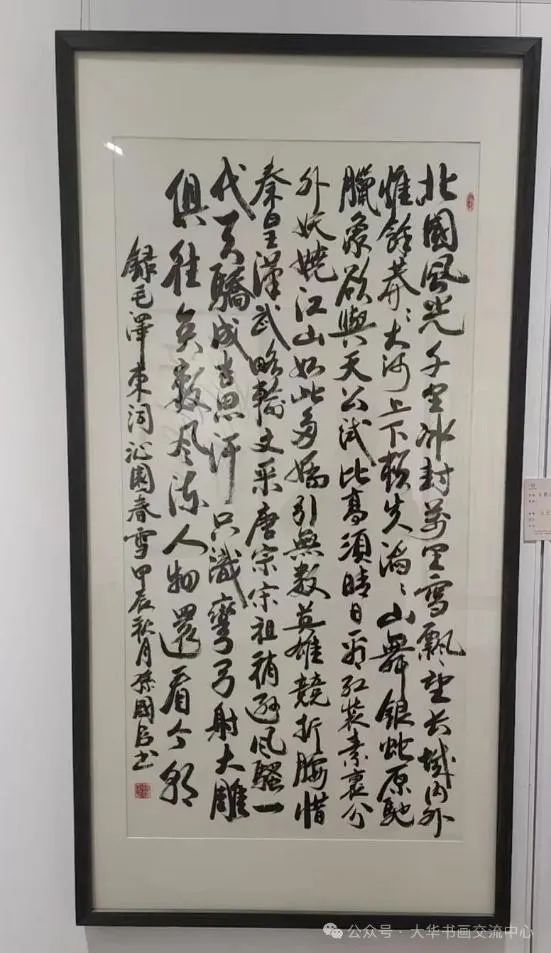 北國風光千里冰封萬里雪飄望长城內外
惟餘莽〻大河上下頓失滔〻山舞銀蛇原馳
臘象欲與天公試比高須晴日看红裝素裹分
外妖嬈江山如此多嬌引無數英雄競折腰惜
秦皇漢武略輸文采唐宗宋祖稍遜風騷一
代天驕成吉思汗只識彎弓射大雕
俱往矣數风流人物還看今朝
錄毛澤東词沁園春雪甲辰秋月孫國书
公众号·大华书画交流中心